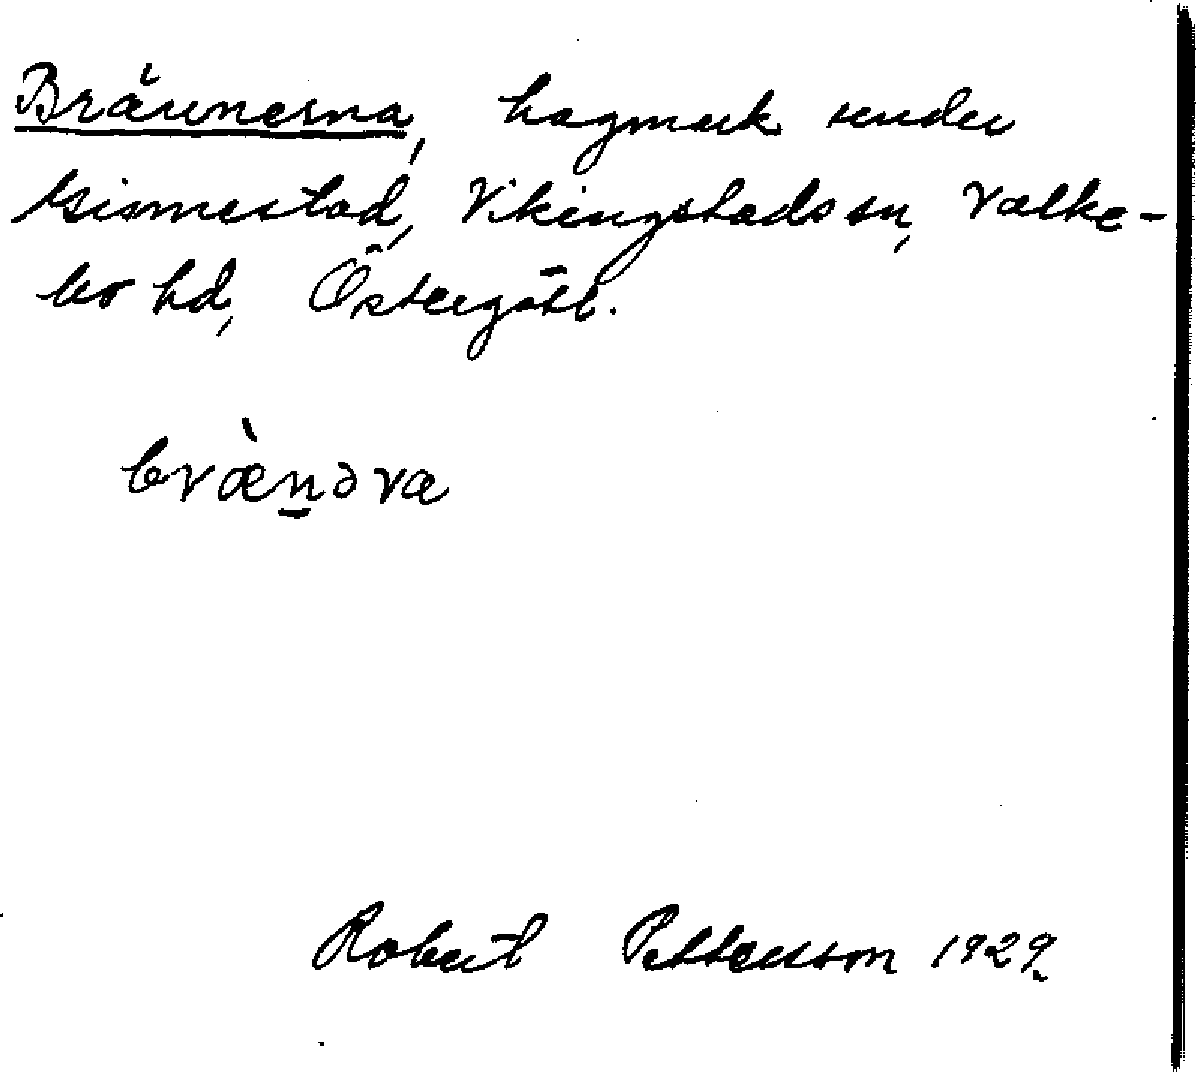 Brännerna, hagmark under
Gismestad, Vikingstads sn, Valke-
bo hd, Östergötl.
bræ̀n̠əra
Robert Pettersson 1929.